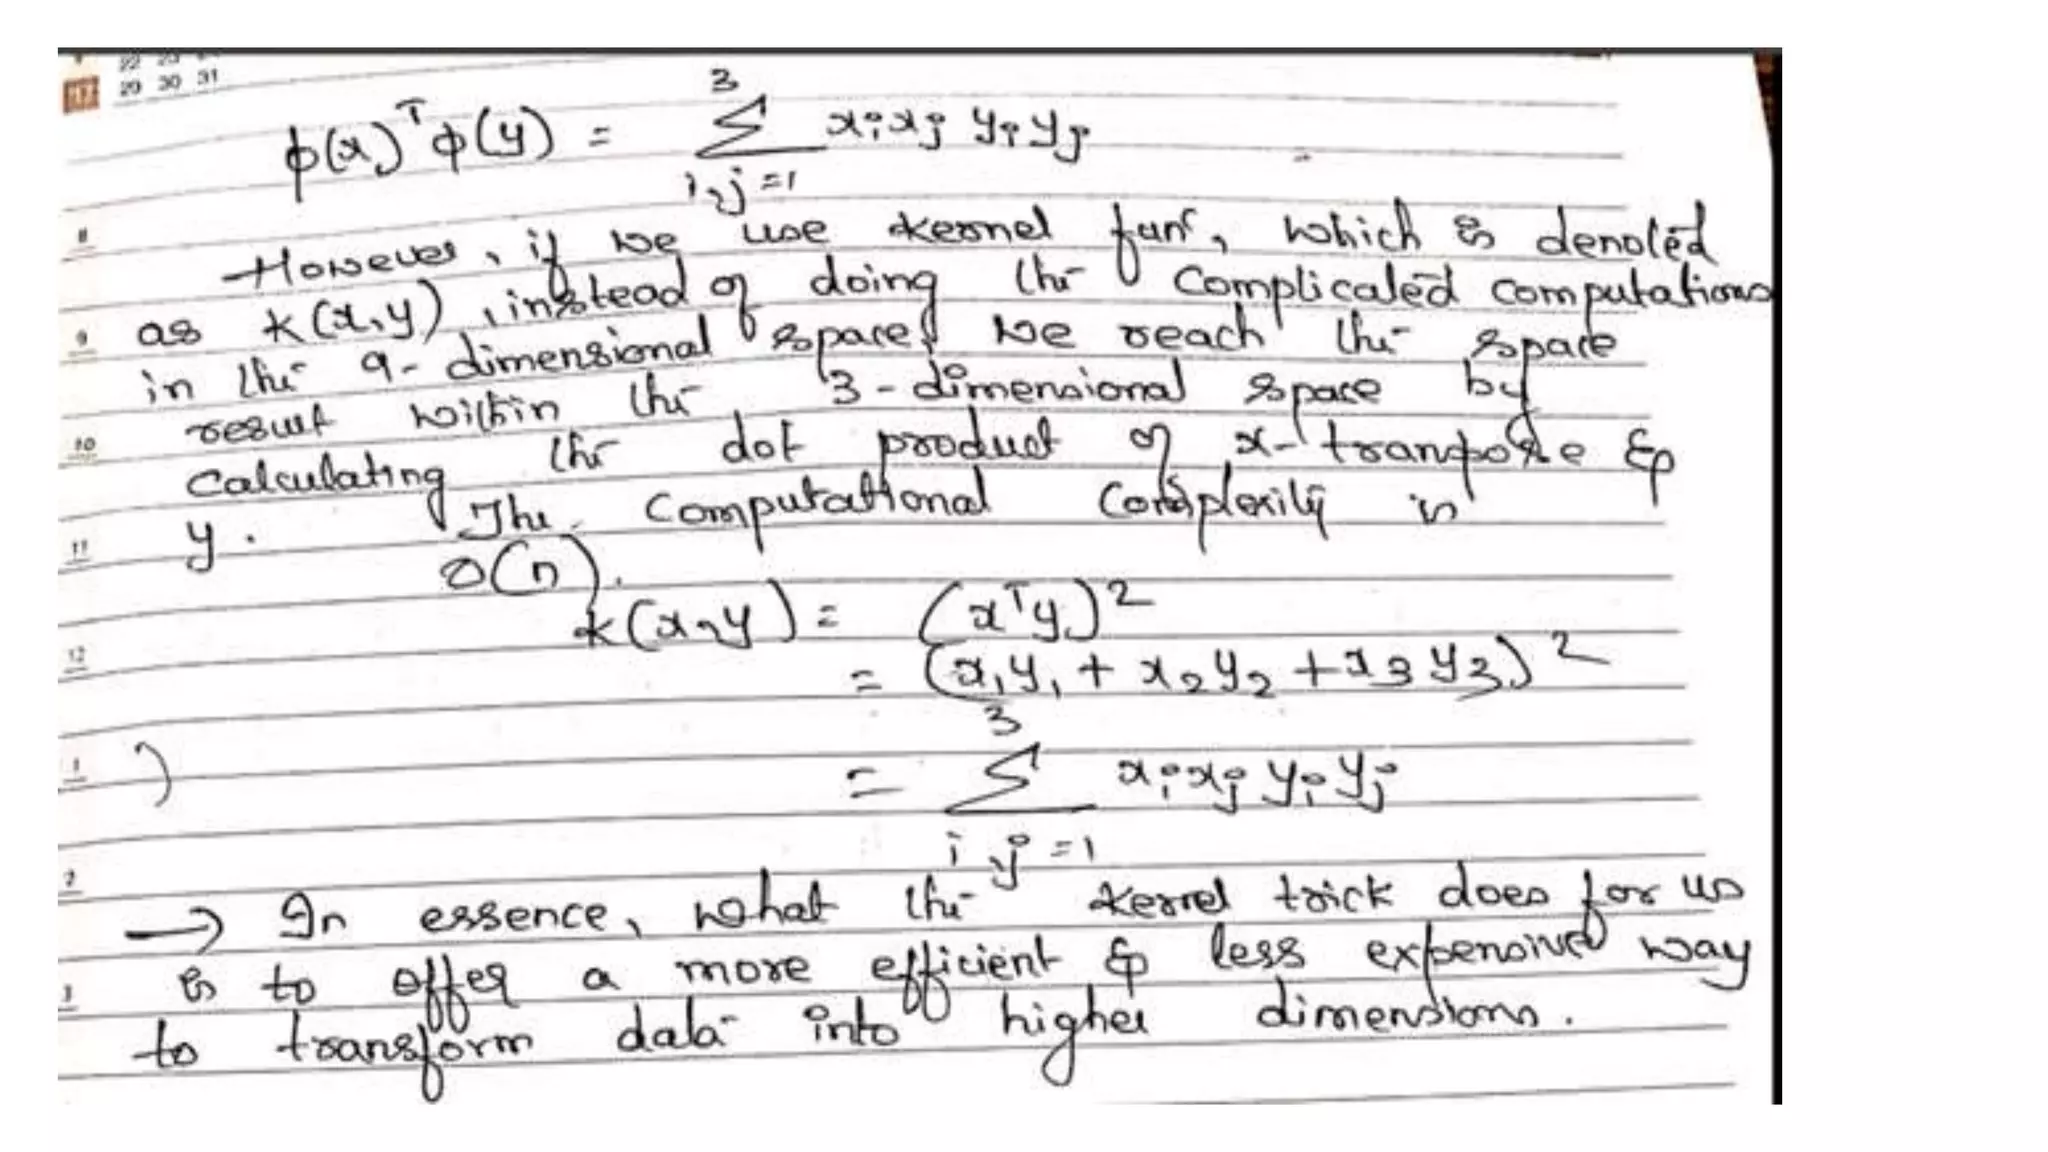 22 23
17 29 30 31
ϕ(x)ᵀϕ(y) = 3 ∑ i,j=1 xᵢxⱼ yᵢyⱼ
8
However, if we use kernel funⁿ, which is denoted
9 as k(x,y), instead of doing the complicated computations
in the 9-dimensional space, we reach the space
10 result within the 3-dimensional space by
calculating the dot product of x-tranpose &
11 y. The computational complexity is
O(n).
k(x,y) = (xᵀy)²
12 = (x₁y₁ + x₂y₂ + x₃y₃)²
1 ) = 3 ∑ i,j=1 xᵢxⱼ yᵢyⱼ
2
→ In essence, what the kernel trick does for us
3 is to offer a more efficient & less expensive way
to transform data into higher dimensions.